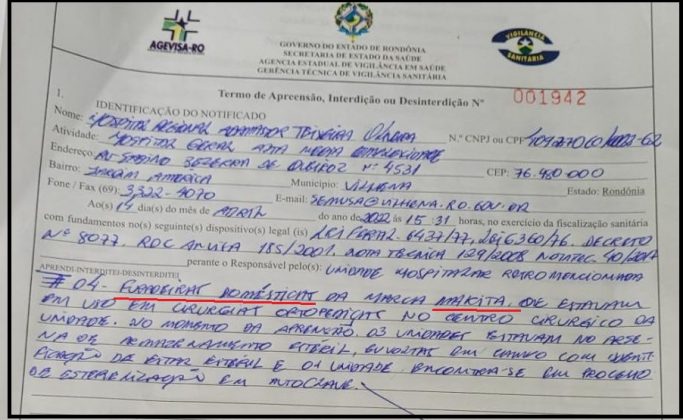 AGEVISA-RO
GOVERNO DO ESTADO DE RONDÔNIA
SECRETARIA DE ESTADO DA SAÚDE
AGENCIA ESTADUAL DE VIGILÂNCIA EM SAÚDE
GERÊNCIA TÉCNICA DE VIGILÂNCIA SANITÁRIA
VIGILANCIA
SANITÁRIA
Termo de Apreensão, Interdição ou Desinterdição Nº 001942
1. IDENTIFICAÇÃO DO NOTIFICADO
Nome: HOSPITAL REGIONAL ADAMASTOR TEIXEIRA OLIVEIRA N.º CNPJ ou CPF
Atividade: HOSPITAL GERAL ALTA MEDIA COMPLEXIDADE
Endereço: BEZERRA DE QUEIROZ Nº 4531 CEP: 76.980000
Bairro: JARDIM AMERICA Município: VILHENA Estado: Rondônia
Fone / Fax (69): 3322-4070 E-mail: SEMUSA@VILHENA.RO.GOV.BR
Ao(s) 14 dia(s) do mês de ABRIL do ano de 2022 às 15:31 horas, no exercício da fiscalização sanitária
com fundamentos no(s) seguinte(s) dispositivo(s) legal (is) LEI FERAL. 6437/77, LEI 6360/76. DECRETO
Nº 8077. RDC ANVISA 185/2001. NOTA TECNICA 129/2008
perante o Responsável pelo(s): UNIDADE HOSPITALAR RETRO MENCIONADA
APREENDI-INTERDITEI-DESINTERDITEI
# 04 - FURADEIRAS DOMÉSTICAS DA MARCA MAKITA, QUE ESTAVAM
EM USO EM CIRURGIAS ORTOPEDICAS NO CENTRO CIRURGICO DA
UNIDADE. NO MOMENTO DA APREENÇÃO. 03 UNIDADES ESTAVAM NO ARSE-
NA DE ARMAZENAMENTO ESTÉRIL, ENVOLTAS EM CAMPO COM IDENTI-
FICAÇÃO DE ESTAR ESTERIL E 01 UNIDADE. ENCONTRA-SE EM PROCESSO
DE ESTERELIZAÇÃO EM AUTOCLAVE.